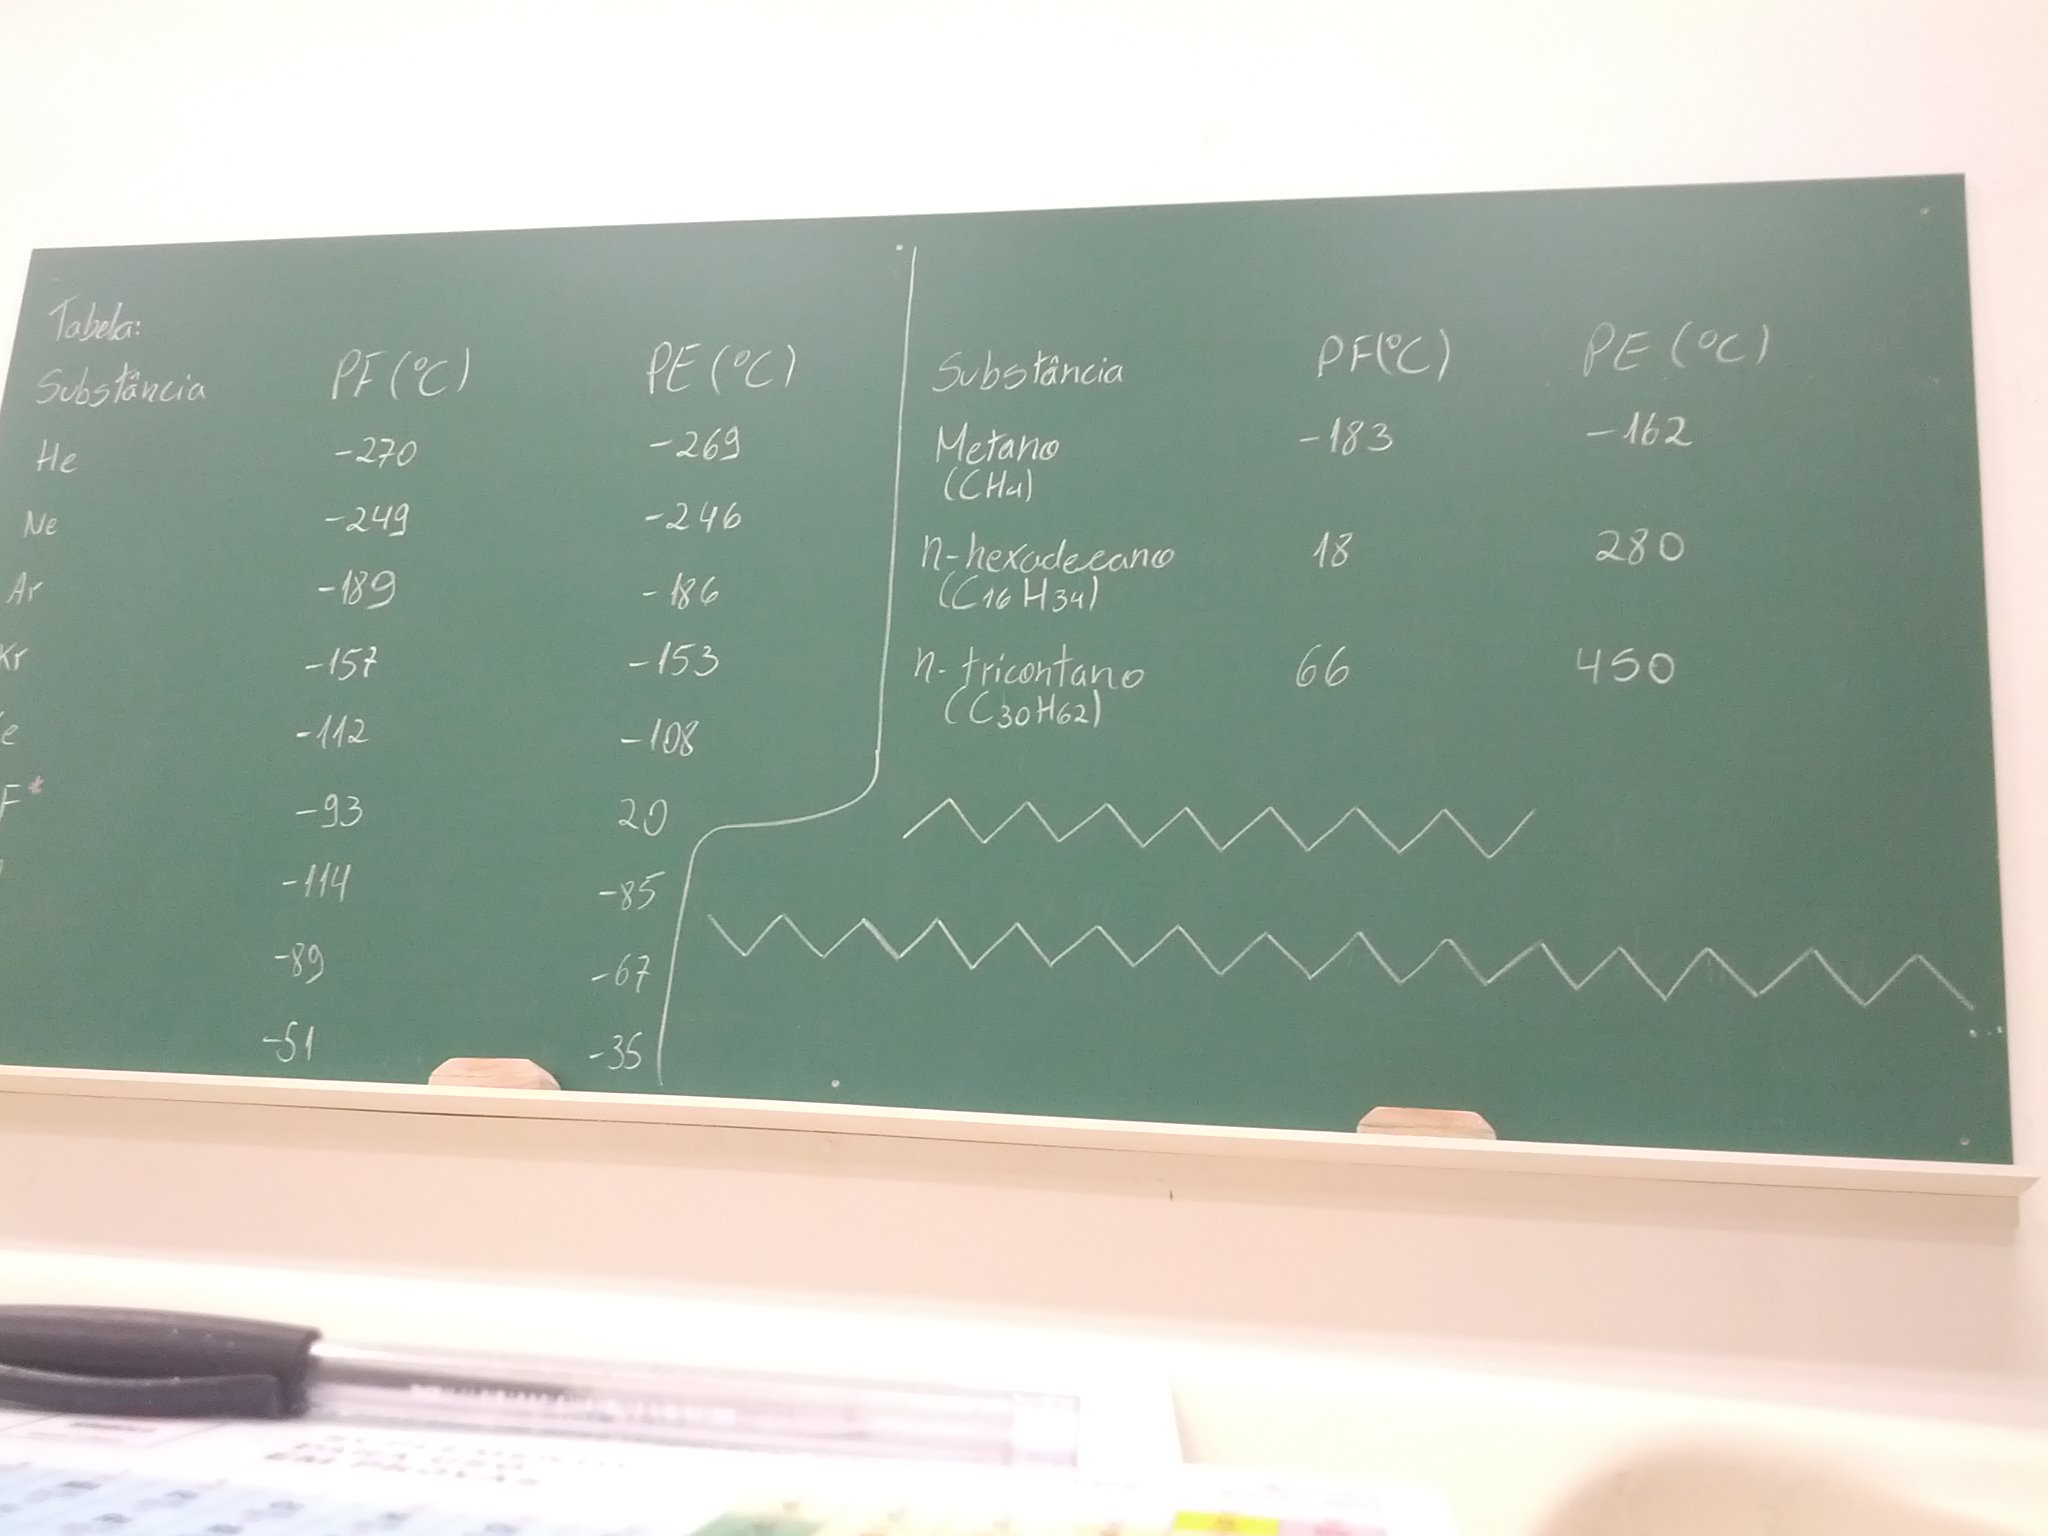 Tabela:
Substância PF (°C) PE (°C)
He -270 -269
Ne -249 -246
Ar -189 -186
Kr -157 -153
e -112 -108
F* -93 20
-114 -85
-89 -67
-51 -35
Substância PF(°C) PE (°C)
Metano -183 -162
(CH4)
n-hexadecano 18 280
(C16H34)
n-tricontano 66 450
(C30H62)
EM PROVAS